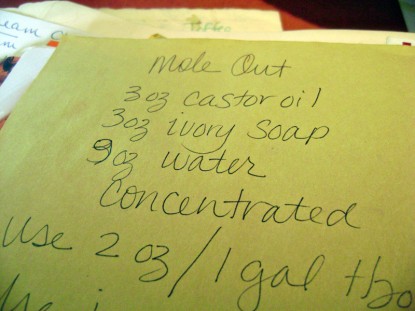 eam
mole Out
3 oz castor oil
3 oz ivory soap
9 oz water
concentrated
use 2 oz / 1 gal